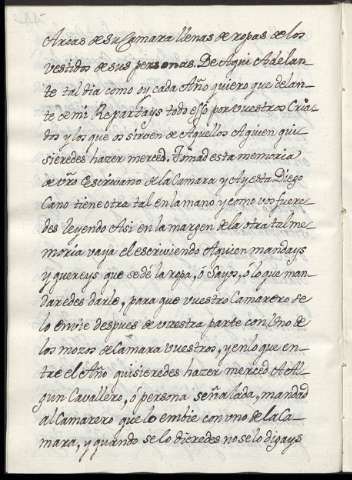 Arcas de su Camara llenas de ropas de los
vestidos de sus personas. De Aqui Adelan-
te tal dia como oy cada Año quiero que delan-
te de mi Repartays todo esso por vuestros Cria-
dos y los que os sirven de Aquellos Aquien qui
sieredes hazer merced. Tomad esta memoria
de vr̃o Escriuano de la Camara y Ay esta Diego
Cano tiene otra tal en la mano y como vos fuere
des leyendo Asi en la margen de la otra tal me
moria vaya el escriviendo Aquien mandays
y quereys que se dè la ropa, ò Sayo, ò lo que man
daredes darle, para que vuestro Camarero se
lo envie despues de vuestra parte con Uno de
los mozos de Camara vuestros, y en lo que en-
tre el Año quisieredes hazer merced A Al-
gun Cavallero, ò persona señalada, mandad
al Camarero que lo embie con uno de la Ca-
mara, y quando se lo dieredes no se lo digays